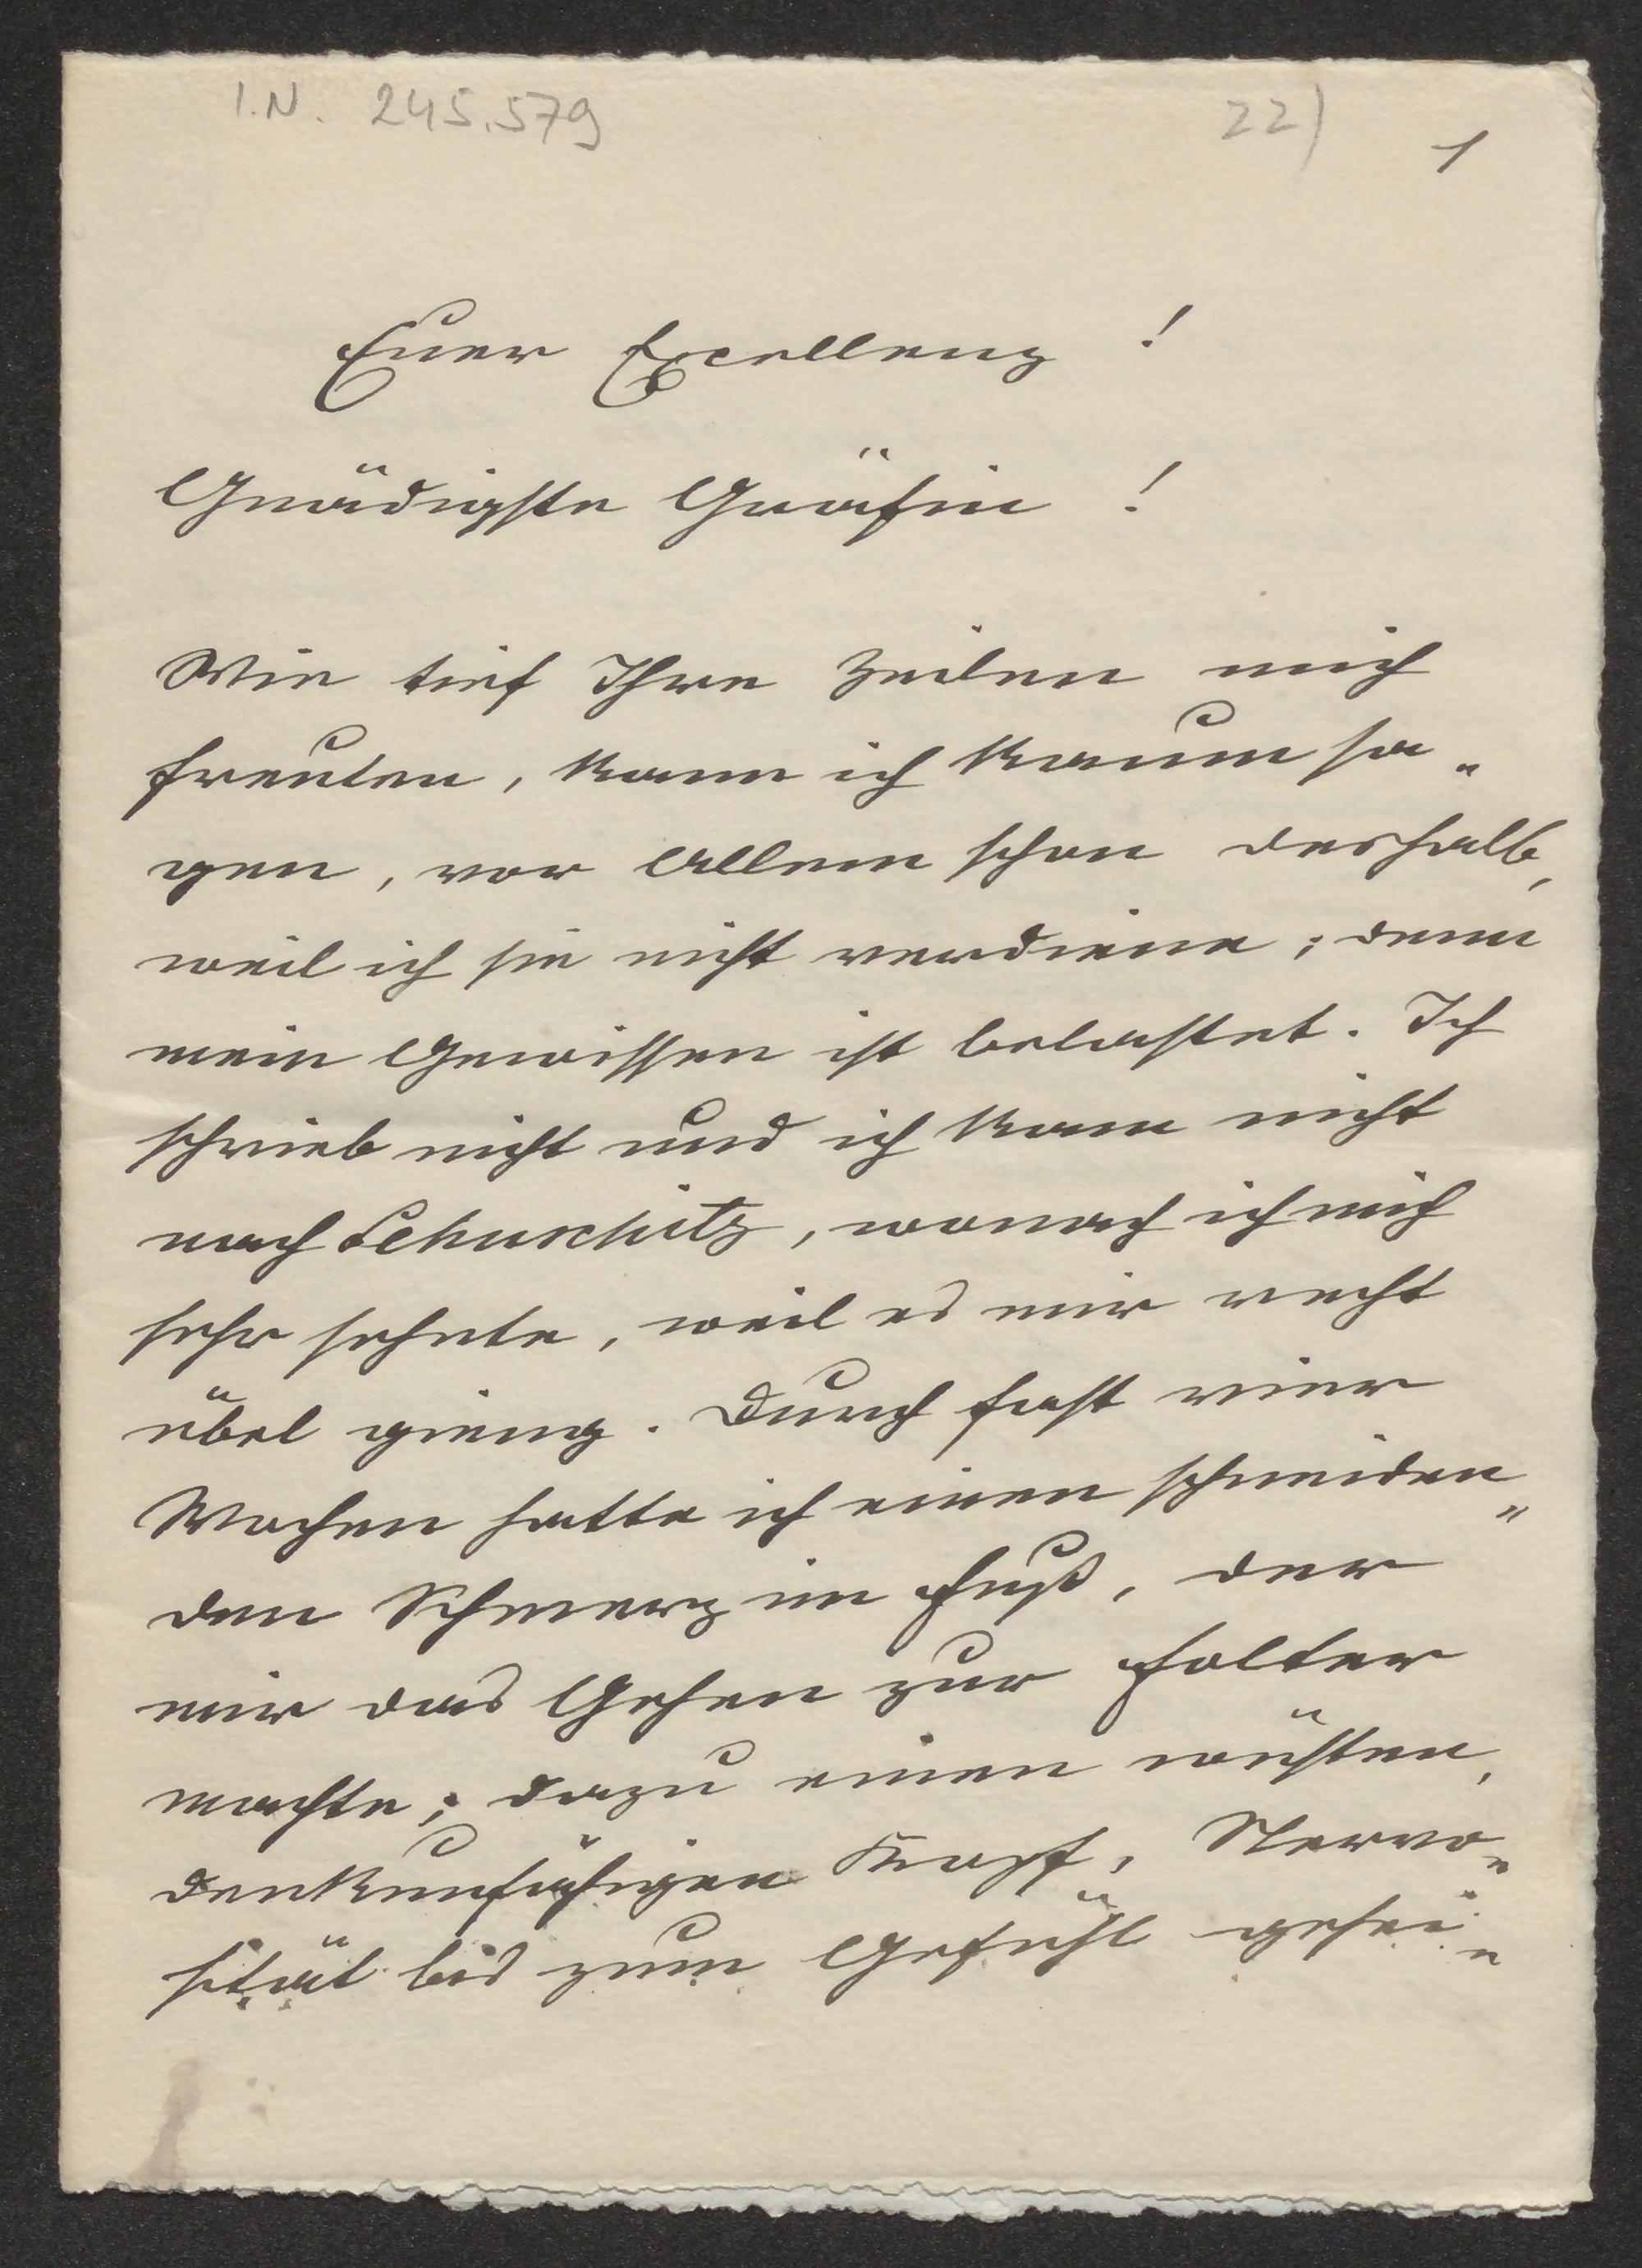 I.N. 245.579
22)
1
Euer Excellenz !
Gnädigste Gräfin !
Wie tief Ihre Zeilen mich
freuten, kann ich kaum sa„
gen, vor Allem schon deshalb,
weil ich sie nicht verdiene; denn
mein Gewissen ist belastet. Ich
schrieb nicht und ich kam nicht
nach Lehuschitz, wonach ich mich
sehr sehnte, weil es mir recht
übel gieng. Durch fast vier
Wochen hatte ich einen schneiden„
den Schmerz im Fuß, der
mir das Gehen zur Folter
machte; dazu einen wüsten,
denkunfähigen Kopf, Nervo„
sität bis zum Gefühl gehei„